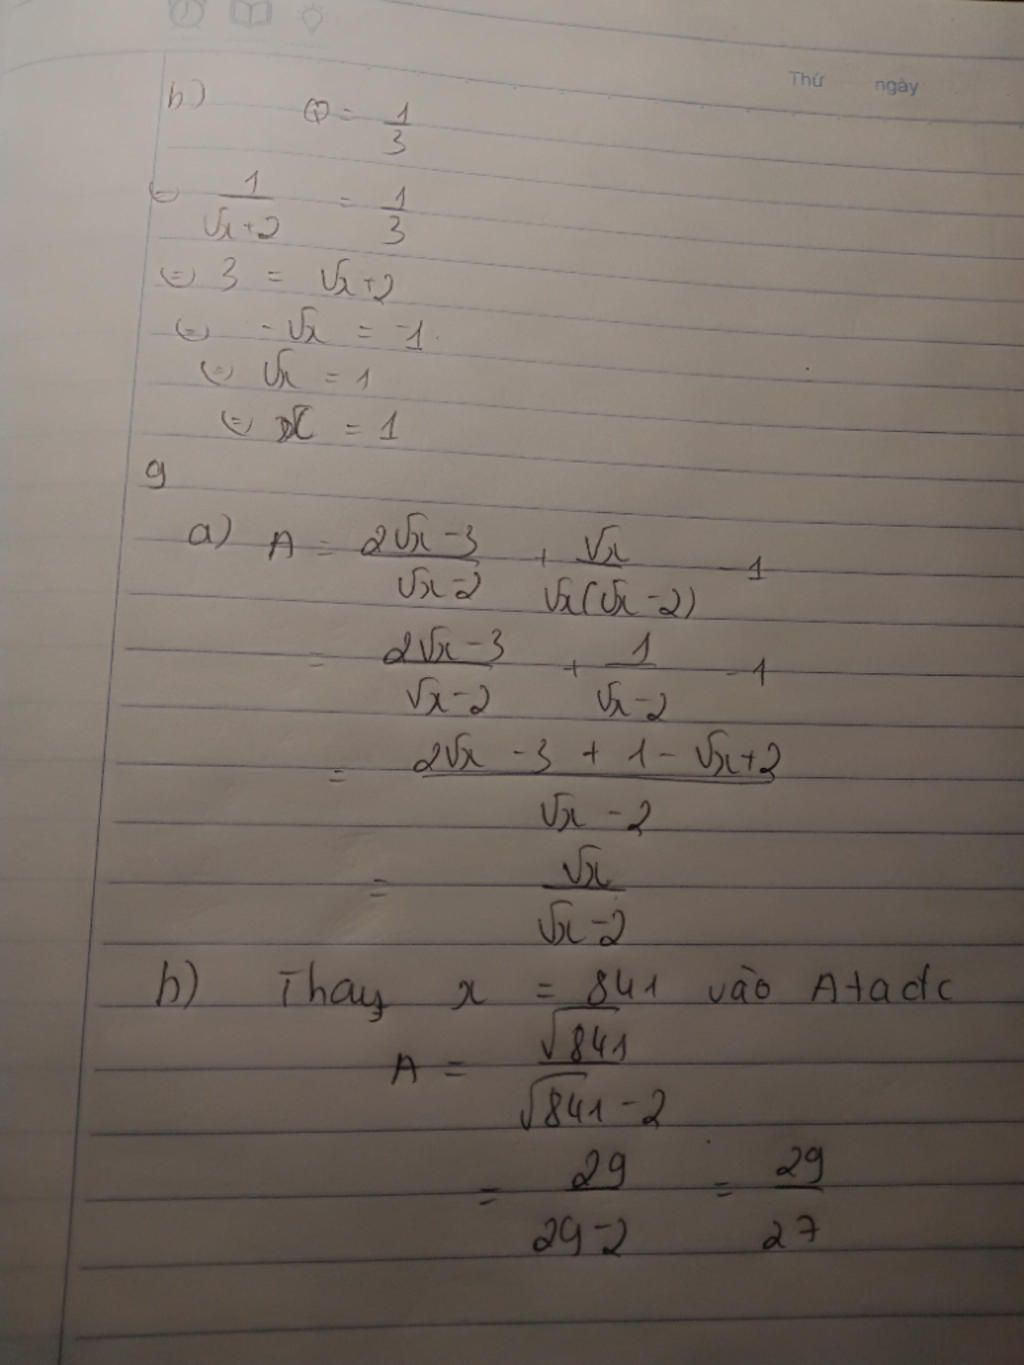 Thứ ngày
b) Q = 1/3
(=) 1/(√x+2) = 1/3
(=) 3 = √x+2
(=) -√x = -1
(=) √x = 1
(=) x = 1
9
a) A = (2√x-3)/(√x-2) + √x/(√x(√x-2)) - 1
= (2√x-3)/(√x-2) + 1/(√x-2) - 1
= (2√x - 3 + 1 - √x+2)/(√x-2)
= √x/(√x-2)
b) Thay x = 841 vào A ta dc
A = √841/(√841-2)
= 29/(29-2) = 29/27